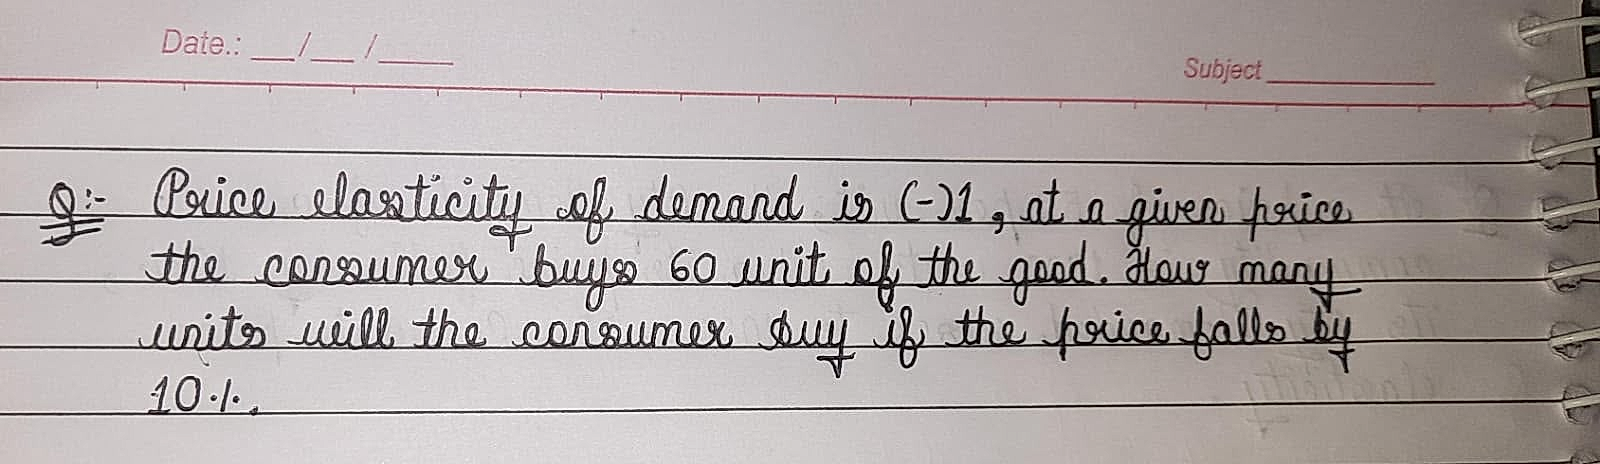 Date.: __/__/____
Subject __________
Q:- Price elasticity of demand is (-)1, at a given price
the consumer buys 60 unit of the good. How many
units will the consumer buy if the price falls by
10%.